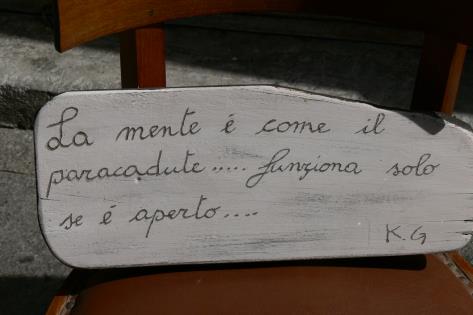 La mente é come il
paracadute..... funziona solo
se é aperto....
K.G